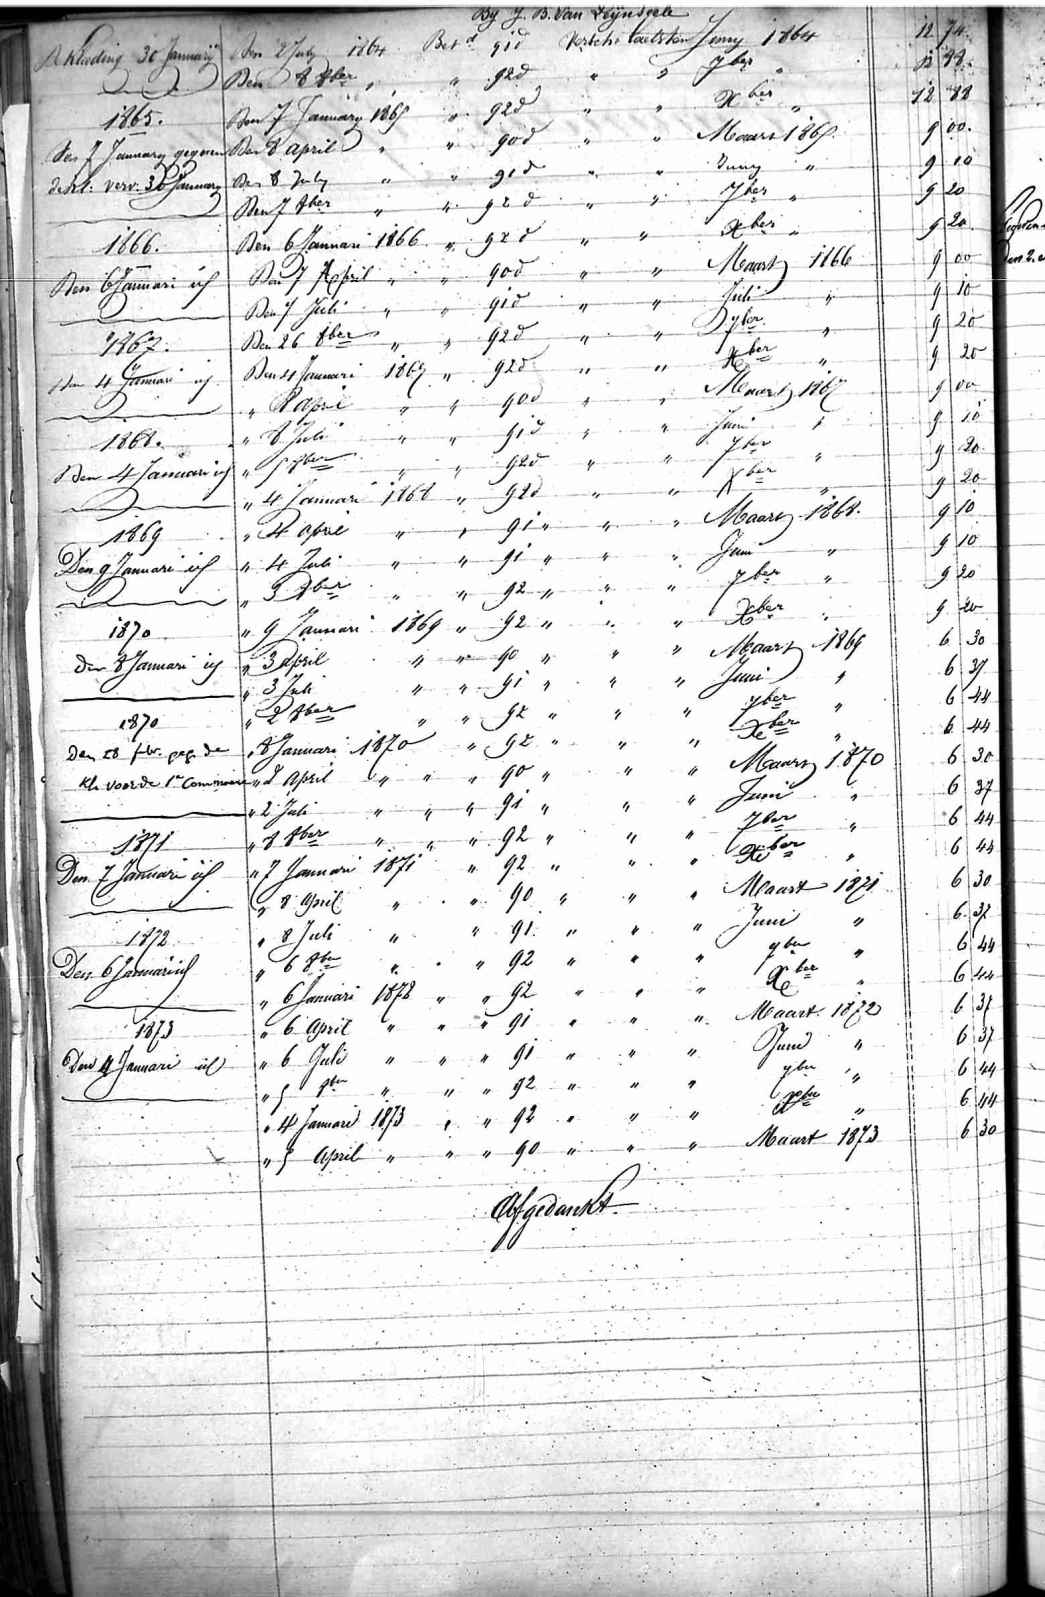 By J. B. Van
Kleeding 30 Januarij Den 2 July 1864 Bet^d 91 d Verschi laetsten Juny 1864 12 74
Den 8 8ber " " 92 d " " 7ber " 12 88
1865. Den 7 January 1865 " 92 d " " Xber " 12 88
Den 7 January gegeven Den 8 april " " 90 d " " Maart 1865 9 00
verv. 30 January Den 8 July " " 91 d " " Juny " 9 10
Den 7 8ber " " 92 d " " 7ber " 9 20
1866. Den 6 Januari 1866 " 92 d " " Xber " 9 20
Den 6 Januari id Den 7 April " " 90 d " " Maart 1866 9 00
Den 7 Juli " " 91 d " " Juli " 9 10
1867. Den 26 8ber " " 92 d " " 7ber " 9 20
den 4 Januari id Den 4 Januari 1867 " 92 d " " Xber " 9 20
" april " " 90 d " " Maart 1867 9 00
1868. " 8 Juli " " 91 d " " Juni " 9 10
Den 4 Januari id " 5 8ber " " 92 d " " 7ber " 9 20
" 4 Januari 1868 " 92 d " " Xber " 9 20
1869 " 4 april " " 91 " " " Maart 1868. 9 10
Den 9 Januari id " 4 Juli " " 91 " " " Juni " 9 10
" 3 8ber " " 92 " " " 7ber " 9 20
1870 " 9 Januari 1869 " 92 " " " Xber " 9 20
den 8 Januari id " 3 april " " 90 " " " Maart 1869 6 30
" 3 Juli " " 91 " " " Juni " 6 37
1870 " 2 8ber " " 92 " " " 7ber " 6 44
Den 28 feb. geg. de " 8 Januari 1870 " 92 " " " Xber " 6 44
Kl. voor de 1e Communie " 2 april " " " 90 " " " Maart 1870 6 30
" 2 Juli " " " 91 " " " Juni " 6 37
1871 " 8 8ber " " " 92 " " " 7ber " 6 44
Den 7 Januari id " 7 Januari 1871 " 92 " " " Xber " 6 44
" 8 april " " 90 " " " Maart 1871 6 30
1872 " 8 Juli " " 91 " " " Juni " 6 37
Den 6 Januari id " 6 8ber " " " 92 " " " 7ber " 6 44
" 6 Januari 1872 " " 92 " " " Xber " 6 44
1873 " 6 April " " " 91 " " " Maart 1872 6 37
Den 4 Januari id " 6 Juli " " " 91 " " " Juni " 6 37
" 5 8ber " " " 92 " " " 7ber " 6 44
" 4 Januari 1873 " " 92 " " " Xber " 6 44
" 5 April " " " 90 " " " Maart 1873 6 30
Afgedankt